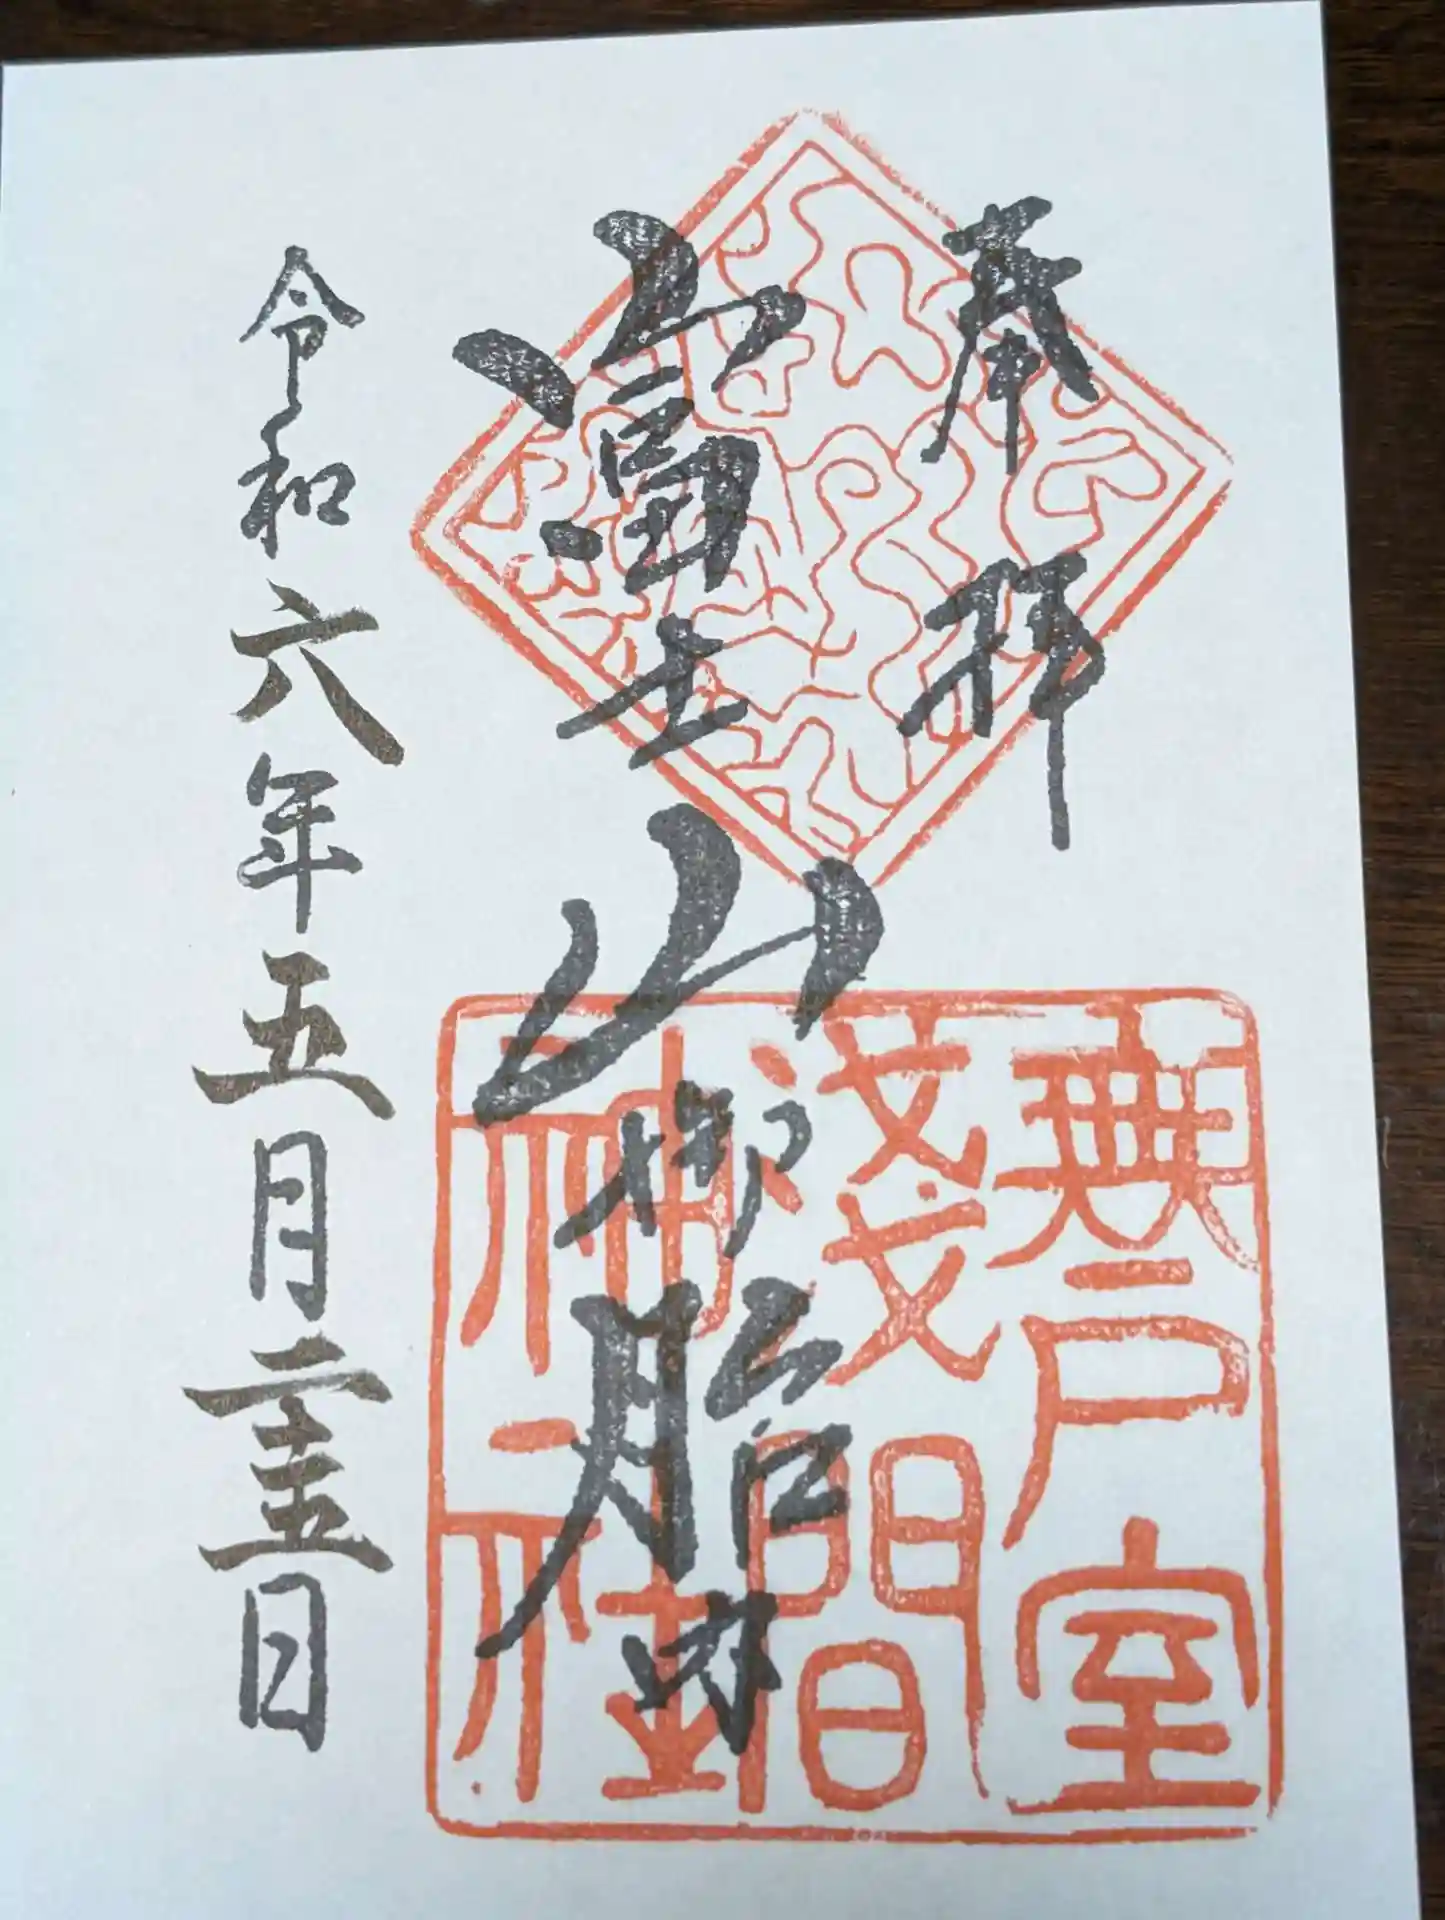 奉拝
富士山御胎内
無戸室
淺間
神社
令和六年五月二十五日